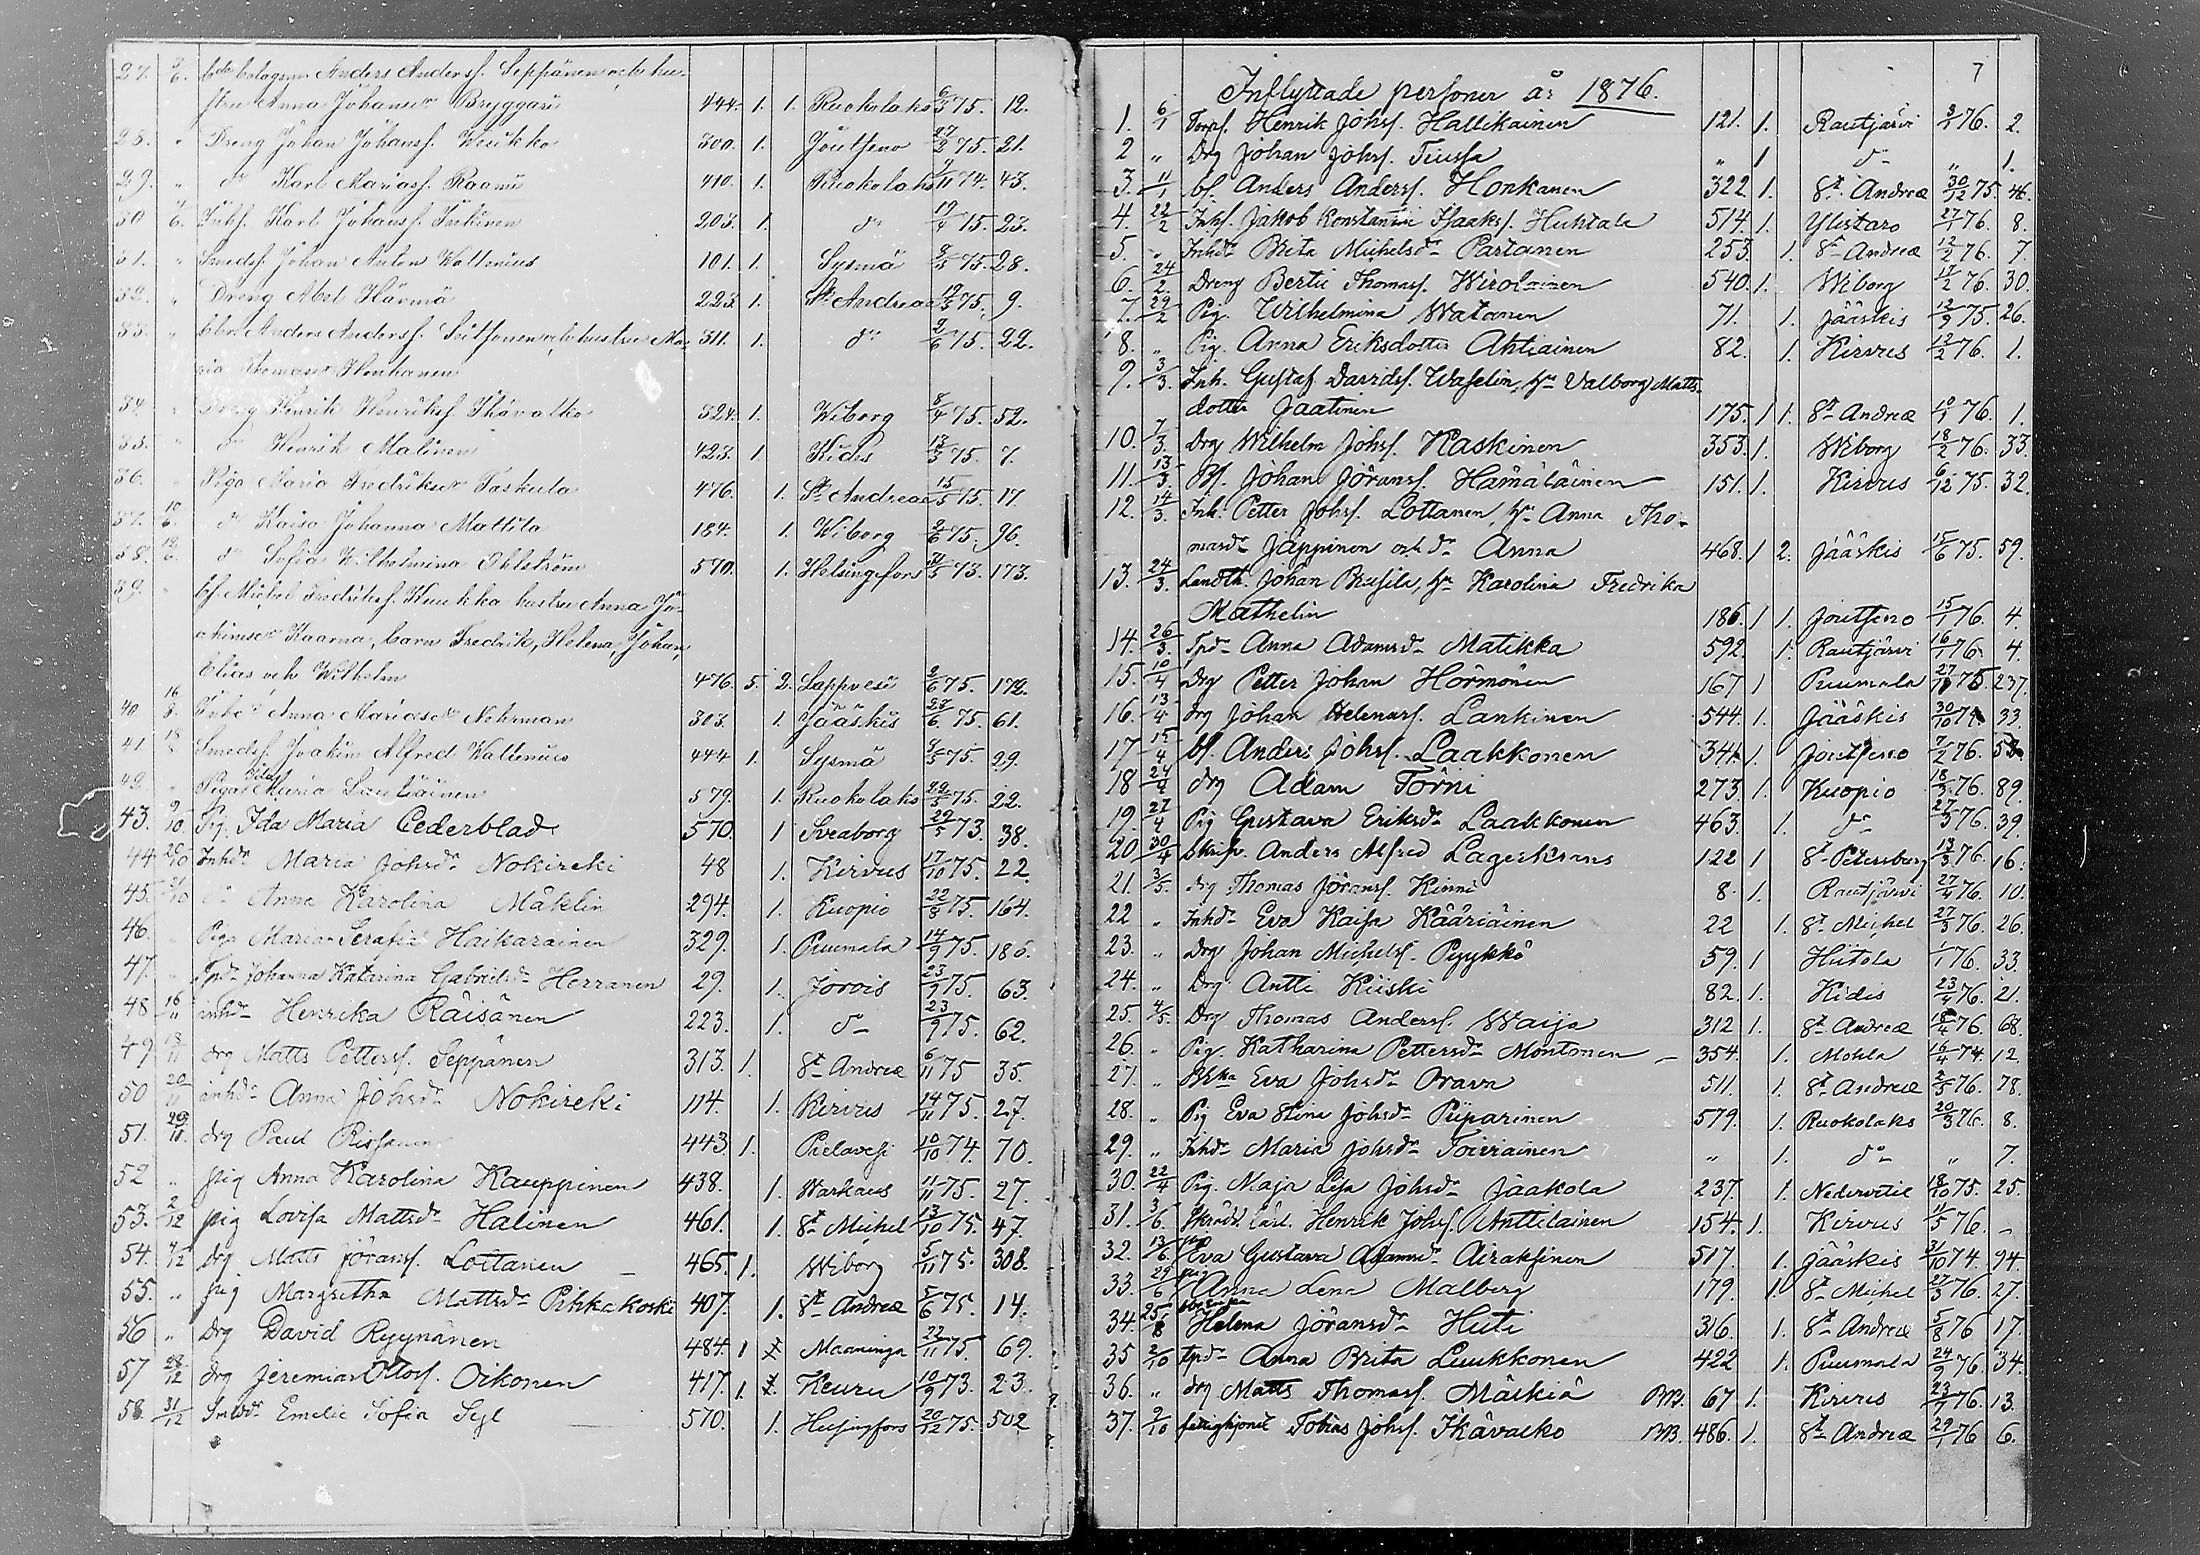 27. 5/6. bdebolagsm Anders Anderss. Seppänen och hu-
stru Anna Johansdr Bryggari 444. 1. 1. Ruokolaks 6/3 75. 12.
28. " Dreng Johan Johanss. Wesikko 300. 1. Joutseno 27/2 75. 21.
29. " do Karl Mariass. Raami 410. 1. Ruokolaks 7/11 74. 43.
30 Inhs. Karl Johanss. Inkinen 203. 1. do 19/4 75. 23.
31. " Smeds. Johan Anton Waltenius 101. 1. Sysmä 8/5 75. 28.
32. " Dreng Abel Härmä 223. 1. St Andreae 19/5 75. 9.
33. " Anders Anderss. och hustru Ma- 311. 1. do 2/6 75. 22.
ria Thomasdr Honkanen
34. " Dreng Henrik Henrikss. Ikävalko 324. 1. Wiborg 8/4 75. 52.
35. " do Henrik Malinen 423. 1. Kides 13/3 75. 7.
36. " Piga Maria Fredriksdr Taskula 476. 1. St Andreae 15/5 75. 17.
37. 10/6. do Kaisa Johanna Mattila 184. 1. Wiborg 2/6 75. 96.
38. do Sofia Wilhelmina Ohlström 570. 1. Helsingfors 73. 173.
39. " bs. Michel Fredrikss. Kuukka hustru Anna Jo-
akimsdr Kaarna, barn Fredrik, Helena, Johan,
Elias och Wilhelm 476. 5. 2. Lappvesi 2/6 75. 172.
40. 16/8. Anna Mariasdr Nehrman 303. 1. Jääskis 28/6 75. 61.
41. Smeds. Joakim Alfred Waltenius 444 1. Sysmä 8/5 75. 29.
42. " Piga Maria 579. 1. Ruokolaks 22/5 75. 22.
43. 9/10. Pig. Ida Maria Cederblad 570. 1 Sveaborg 29/5 73. 38.
44 Inhdr Maria Johsdr Nokireki 48 1. Kirvus 17/10 75. 22.
45. do Anna Karolina Mäklin 294. 1. Kuopio 22/8 75. 164.
46. " Piga Maria Serafia Haikarainen 329. 1. Puumala 14/9 75. 186.
47. " Tpdr Johanna Katarina Gabrielsdr Herranen 29. 1. Jorois 23/9 75. 63.
48 16/11 inhdr Henrika Räisänen 223. 1. do 23/9 75. 62.
49 18/11 drg Matts Petterss. Seppänen 313. 1. St Andreæ 6/11 75 35.
50 20/11 inhdr Anna Johsdr Nokireki 114. 1. Kirvus 14/11 75. 27.
51. drg Paul Rissanen 443. 1. Pielavesi 10/10 74. 70.
52 " pig Anna Karolina Kauppinen 438. 1. Warkaus 11/11 75. 27.
53. 2/12 pig Lovisa Mattsdr Halinen 461. 1. St Michel 13/10 75. 47.
54. 7/12 drg Matts Jöranss. Lottanen – 465. 1. Wiborg 5/11 75. 308.
55. " pig Margretha Mattsdr Pihkakoski 407. 1. St Andreæ 5/6 75. 14.
56 " Drg David Ryynänen 484. 1 Maaninga 22/11 75. 69.
57 28/12 drg Jeremias Ottos. Oikonen 417. 1. Keuru 10/9 73. 23.
58. 31/12 Smeddr Emelie Sofia Segl 570. 1. Helsingfors 20/12 75. 502
7
Inflyttade personer år 1876.
1. 6/1 Torps. Henrik Johss. Hallikainen 121. 1. Rautjärvi 3/1 76. 2.
2 " Drg Johan Johss. Tiussa " 1 do " 1.
3. 11/1 bs. Anders Anderss. Honkanen 322 1. St Andreæ 30/12 75. 46.
4. 22/2 Inhs. Jakob Konstantin Isaaks. Huhtala 514. 1. Ylistaro 27/1 76. 8.
5. " Inhdr Brita Michelsdr Partanen 253. 1. St Andreæ 12/2 76. 7
6. 24/2. Dreng Bertil Thomass. Wirolainen 540. 1. Wiborg 17/2 76. 30.
7. 29/2 Pig. Wilhelmina Watanen 71. 1. Jääskis 12/9 75. 26.
8. " Pig. Anna Eriksdotter Ahtiainen 82. 1. Kirvus 12/2 76. 1.
9. 3/3. Inh. Gustaf Davids. Waselin, hu Valborg Matts-
dotter Jaatinen 175. 1 1. St Andreæ 10/1 76. 1.
10. 7/3. Drg Wilhelm Johss. Kaskinen 353. 1. Wiborg 18/2 76. 33.
11. 13/3. Bs. Johan Jöranss. Hämäläinen – 151. 1. Kirvus 6/12 75. 32.
12. 14/3. Inh. Petter Johss. Lottanen, hu Anna Tho-
masdr Jäppinen och dr Anna 468. 1 2. Jääskis 15/6 75. 59.
13. 24/3. Landth. Johan Brusila, hu Karolina Fredrika
Mathelin 186. 1 1. Joutseno 15/1 76. 4.
14. 26/3. Tpdr Anna Adamsdr Matikka 592. 1. Rautjärvi 16/1 76. 4.
15. 10/4 Drg Petter Johan Hörmönen 167 1 Puumala 75. 237.
16. 13/4 drg Johan Helenass. Lankinen 544. 1. Jääskis 30/10 33.
17 15/4 bs. Anders Johss. Laakkonen 344. 1. Joutseno 7/2 76.
18 24/4 drg Adam Törni 273. 1. Kuopio 18/3 76. 89.
19. 27/4 Pig Gustava Eriksdr Laakkonen 463. 1. do 27/3 76. 39.
20 30/4 Skrifv. Anders Alfred Lagerkrans 122 1 St Petersburg 13/3 76. 16.
21. 3/5. drg Thomas Jöranss. Kinni 8. 1. Rautjärvi 27/4 76. 10.
22 " Inhdr Eva Kaisa Kääriäinen 22 1. St Michel 27/3 76. 26.
23. " Drg Johan Michelss. Pyykkö 59. 1 Hiitola 1/1 76. 33.
24. " Drg Antti Kiiski 82. 1. Kides 23/4 76. 21.
25. 4/5. Drg Thomas Anderss. Waija 312 1. St Andreæ 18/4 76. 68.
26. " Pig. Katharina Pettersdr Montonen – 354. 1. Mohla 16/4 74. 12.
27. " Eva Johsdr Orava 511. 1. St Andreæ 2/5 76. 78.
28. " Pig Eva Stina Johsdr Piiparinen 579. 1. Ruokolaks 20/3 76. 8.
29. " Inhdr Maria Johsdr Toiviainen " 1. do " 7.
30. 22/4 Pig. Maja Lisa Johsdr Jaakola 237. 1. Nedervetil 18/10 75. 25.
31. 3/6. Skrädd. lärl. Henrik Johss. Anttilainen 154. 1. Kirvus 11/5 76. –
32. 13/6. pig Eva Gustava Adamsdr Airaksinen 517. 1. Jääskis 31/10 74. 94.
33. 29/6 pig Anna Lena Malberg 179. 1. St Michel 27/3 76. 27.
34. 25/8 Helena Jöransdr Huti 316. 1. St Andreæ 5/8 76 17.
35 2/10 tpdr Anna Brita Luukkonen 422 1. Puumala 24/9 76 34.
36. " drg Matts Thomass. Mäskiä BB. 67 1. Kirvus 23/9 76. 13.
37. 9/10 fattighjonet Tobias Johss. Ikävalko BB. 486. 1. St Andreæ 29/1 76 6.